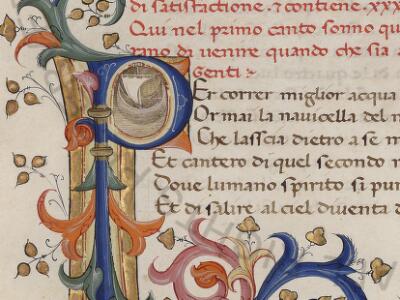 di satisfactione . & contiene . xxx
Qui nel primo canto sonno qu
rano di uenire quando che sia a
genti :
Per correr miglior acqua
Or mai la nauicella del m
Che lasscia dietro a se m
Et cantero di quel secondo r
Doue lumano spirito si pur
Et di salire al ciel diuenta d